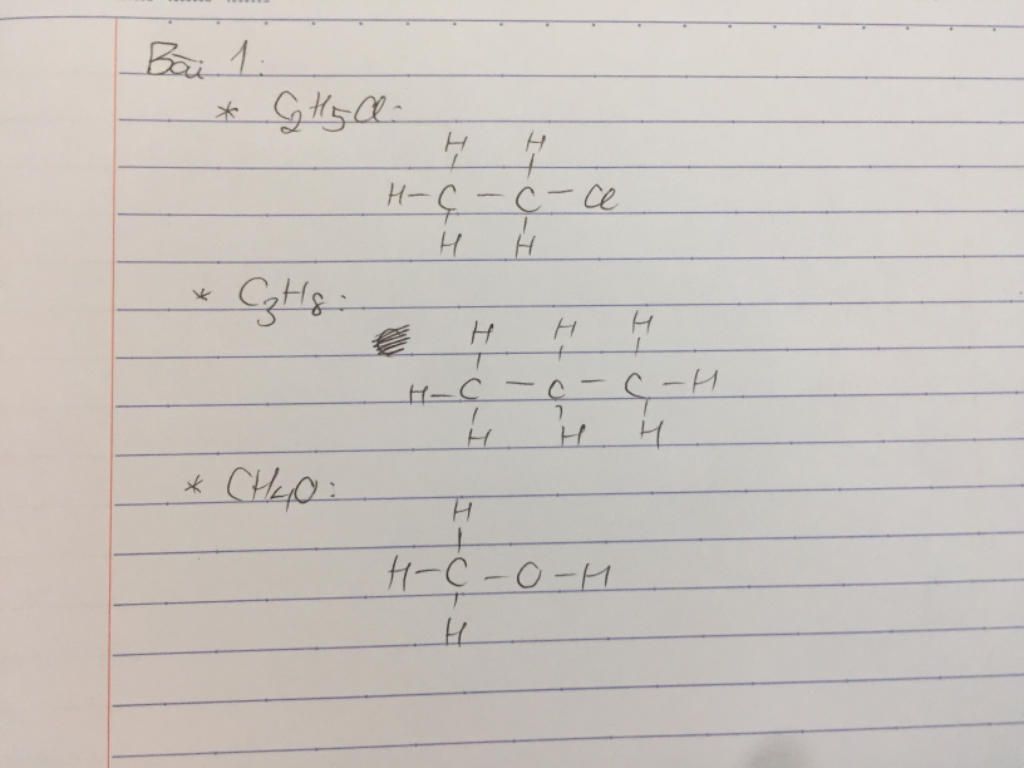 Bài 1:
* C2H5Cl:
H H
H - C - C - Cl
H H
* C3H8:
H H H
H - C - C - C - H
H H H
* CH4O:
H
H - C - O - H
H